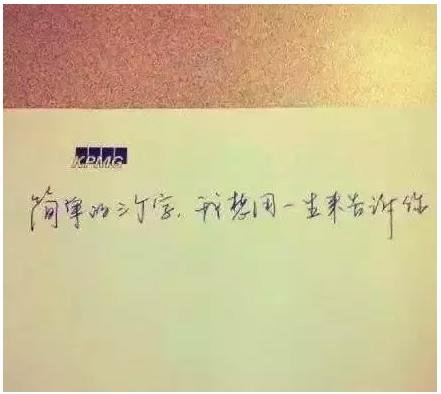 KPMG
简单的三个字，我想用一生来告诉你